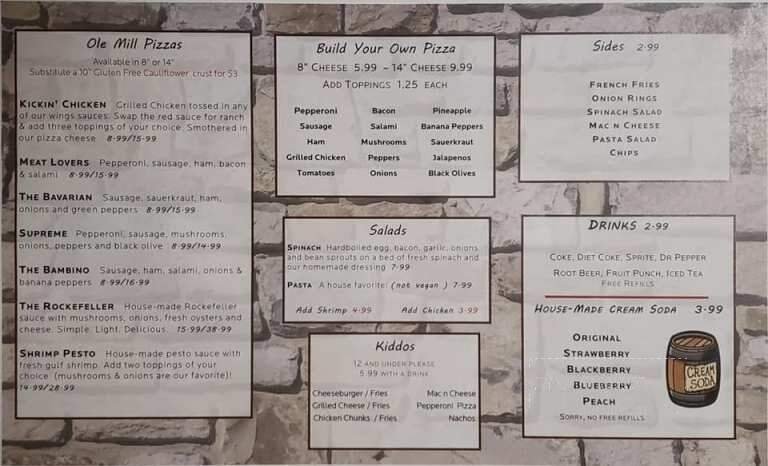 Ole Mill Pizzas
Available in 8" or 14"
Substitute a 10" Gluten Free Cauliflower crust for $3
KICKIN' CHICKEN Grilled Chicken tossed in any
of our wings sauces. Swap the red sauce for ranch
& add three toppings of your choice. Smothered in
our pizza cheese 8.99/15.99
MEAT LOVERS Pepperoni, sausage, ham, bacon
& salami 8.99/15.99
THE BAVARIAN Sausage, sauerkraut, ham,
onions and green peppers 8.99/15.99
SUPREME Pepperoni, sausage, mushrooms,
onions, peppers and black olive 8.99/14.99
THE BAMBINO Sausage, ham, salami, onions &
banana peppers 8.99/16.99
THE ROCKEFELLER House-made Rockefeller
sauce with mushrooms, onions, fresh oysters and
cheese. Simple. Light. Delicious. 15.99/38.99
SHRIMP PESTO House-made pesto sauce with
fresh gulf shrimp. Add two toppings of your
choice (mushrooms & onions are our favorite)!
14.99/28.99
Build Your Own Pizza
8" CHEESE 5.99 - 14" CHEESE 9.99
ADD TOPPINGS 1.25 EACH
Pepperoni Bacon Pineapple
Sausage Salami Banana Peppers
Ham Mushrooms Sauerkraut
Grilled Chicken Peppers Jalapenos
Tomatoes Onions Black Olives
Salads
SPINACH Hardboiled egg, bacon, garlic, onions
and bean sprouts on a bed of fresh spinach and
our homemade dressing 7.99
PASTA A house favorite! (not vegan) 7.99
Add Shrimp 4.99 Add Chicken 3.99
Kiddos
12 AND UNDER PLEASE
5.99 WITH A DRINK
Cheeseburger / Fries Mac n Cheese
Grilled Cheese / Fries Pepperoni Pizza
Chicken Chunks / Fries Nachos
Sides 2.99
FRENCH FRIES
ONION RINGS
SPINACH SALAD
MAC N CHEESE
PASTA SALAD
CHIPS
DRINKS 2.99
COKE, DIET COKE, SPRITE, DR PEPPER
ROOT BEER, FRUIT PUNCH, ICED TEA
FREE REFILLS
HOUSE-MADE CREAM SODA 3.99
ORIGINAL
STRAWBERRY
BLACKBERRY
BLUEBERRY
PEACH
SORRY, NO FREE REFILLS
CREAM
SODA